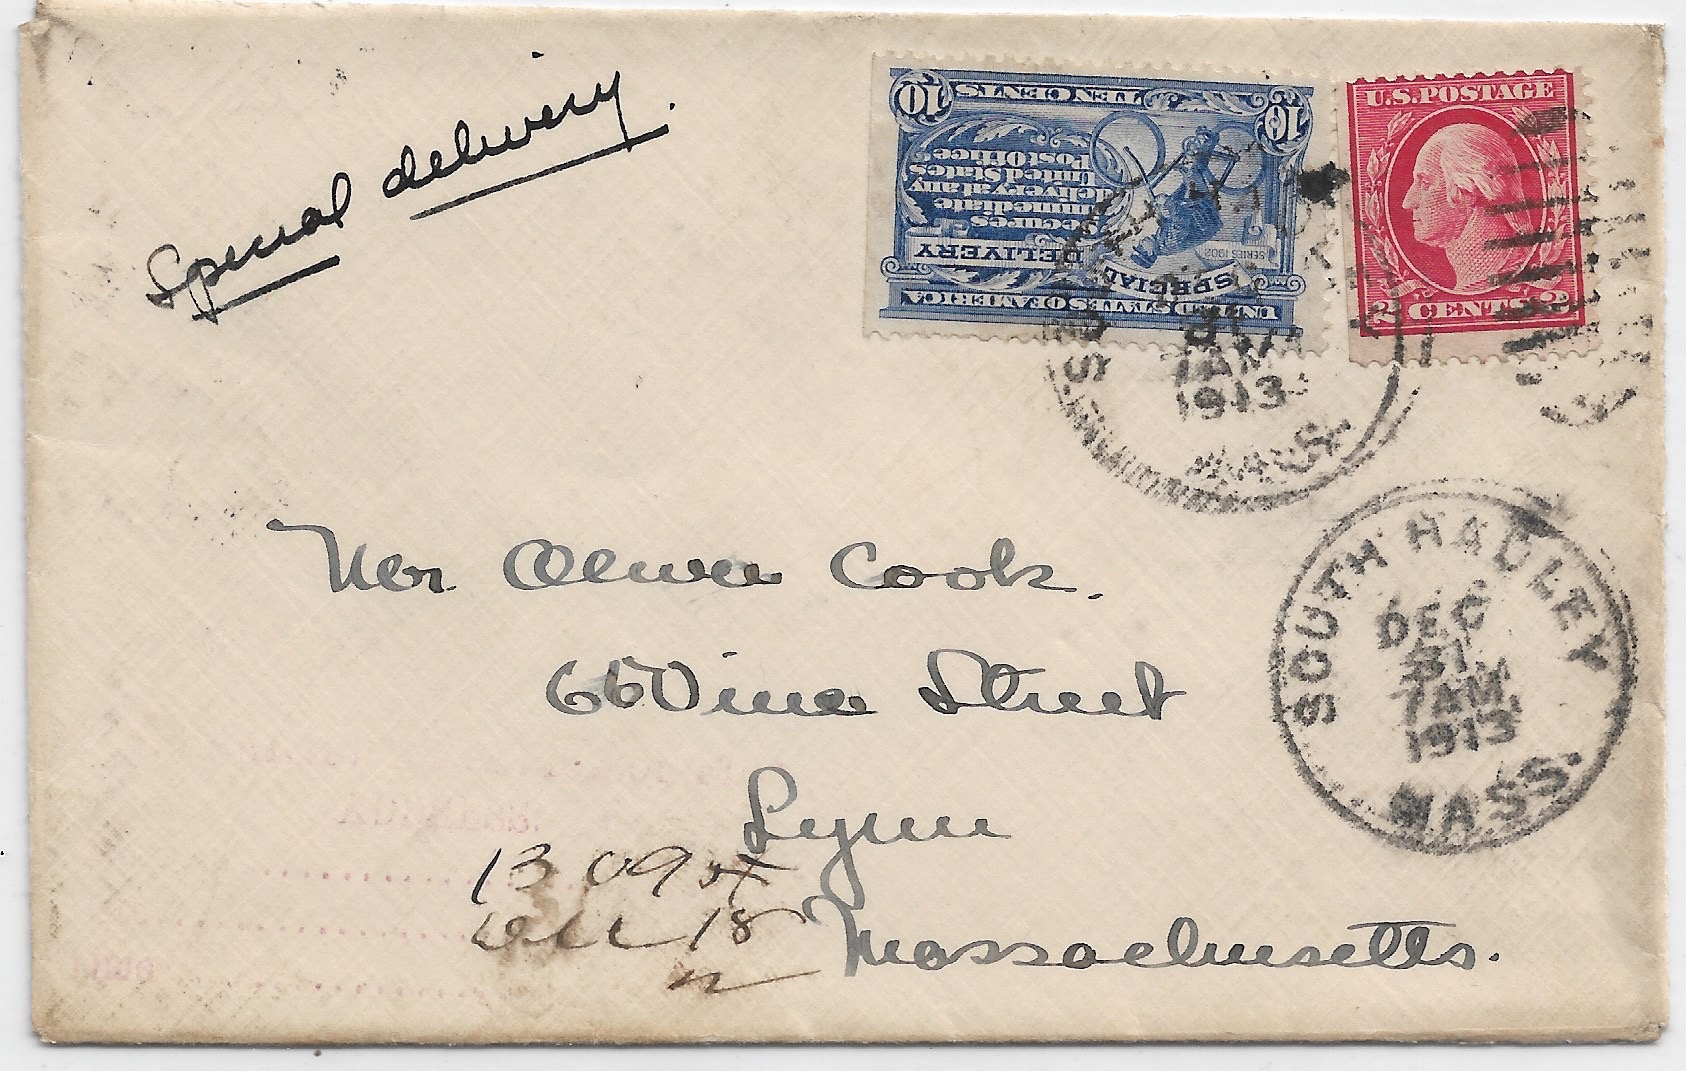 Special delivery.
10 TEN CENTS 10
Secures
immediate
delivery at any
United States
Post Office
SERIES 1902
SPECIAL DELIVERY
UNITED STATES OF AMERICA
U.S. POSTAGE
2 CENTS 2
7 AM
1913
MASS.
SOUTH HADLEY
DEC
31
7 AM
1913
MASS.
Mr. Cook.
66 Vine Street
Lynn
Massachusetts.